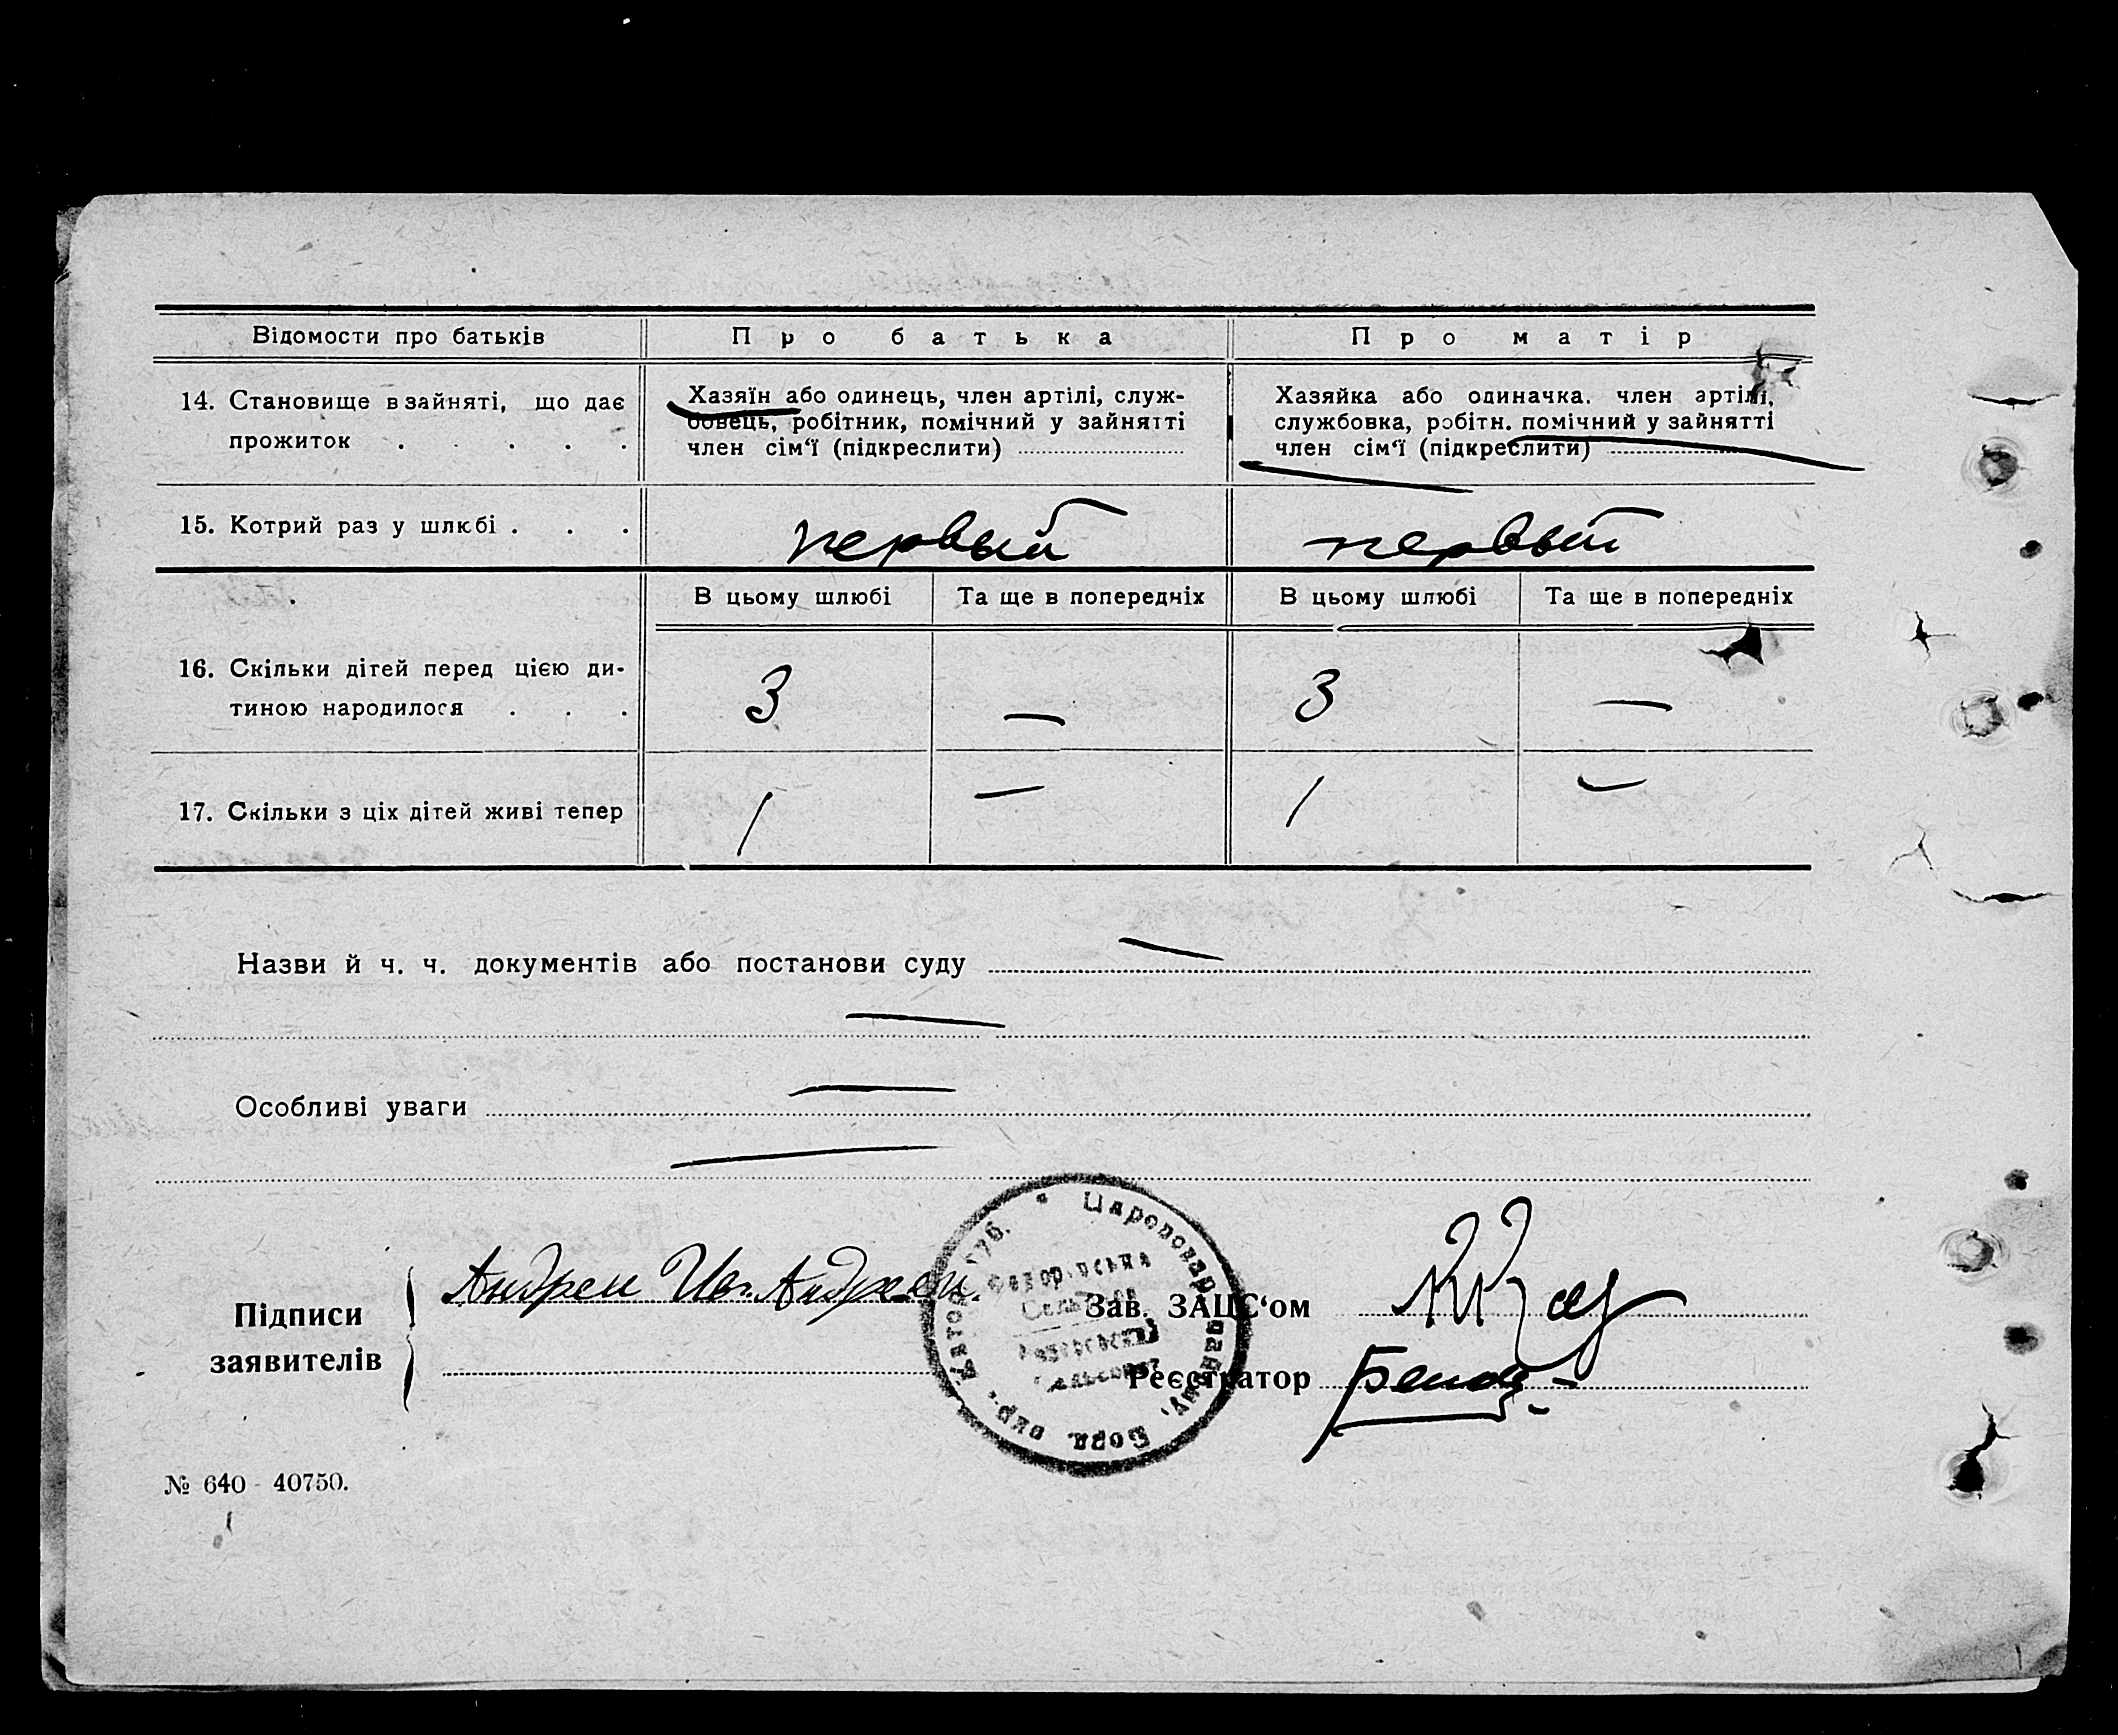 Відомости про батьків
Про батька
Про матір
14. Становище в зайняті, що дає
прожиток . . . . .
Хазяїн або одинець, член артілі, служ-
бовець, робітник, помічний у зайнятті
член сім‘ї (підкреслити)
Хазяйка або одиначка, член артілі,
службовка, робітн. помічний у зайнятті
член сім‘ї (підкреслити)
15. Котрий раз у шлюбі . . .
первый
первый
В цьому шлюбі
Та ще в попередніх
В цьому шлюбі
Та ще в попередніх
16. Скільки дітей перед цією ди-
тиною народилося . . .
3
—
3
—
17. Скільки з ціх дітей живі тепер
1
—
1
—
Назви й ч. ч. документів або постанови суду —
—
Особливі уваги —
—
Підписи
заявителів
Андрей Ив. Андреев
Зав. ЗАЦС‘ом
Реєстратор
№ 640 - 40750.